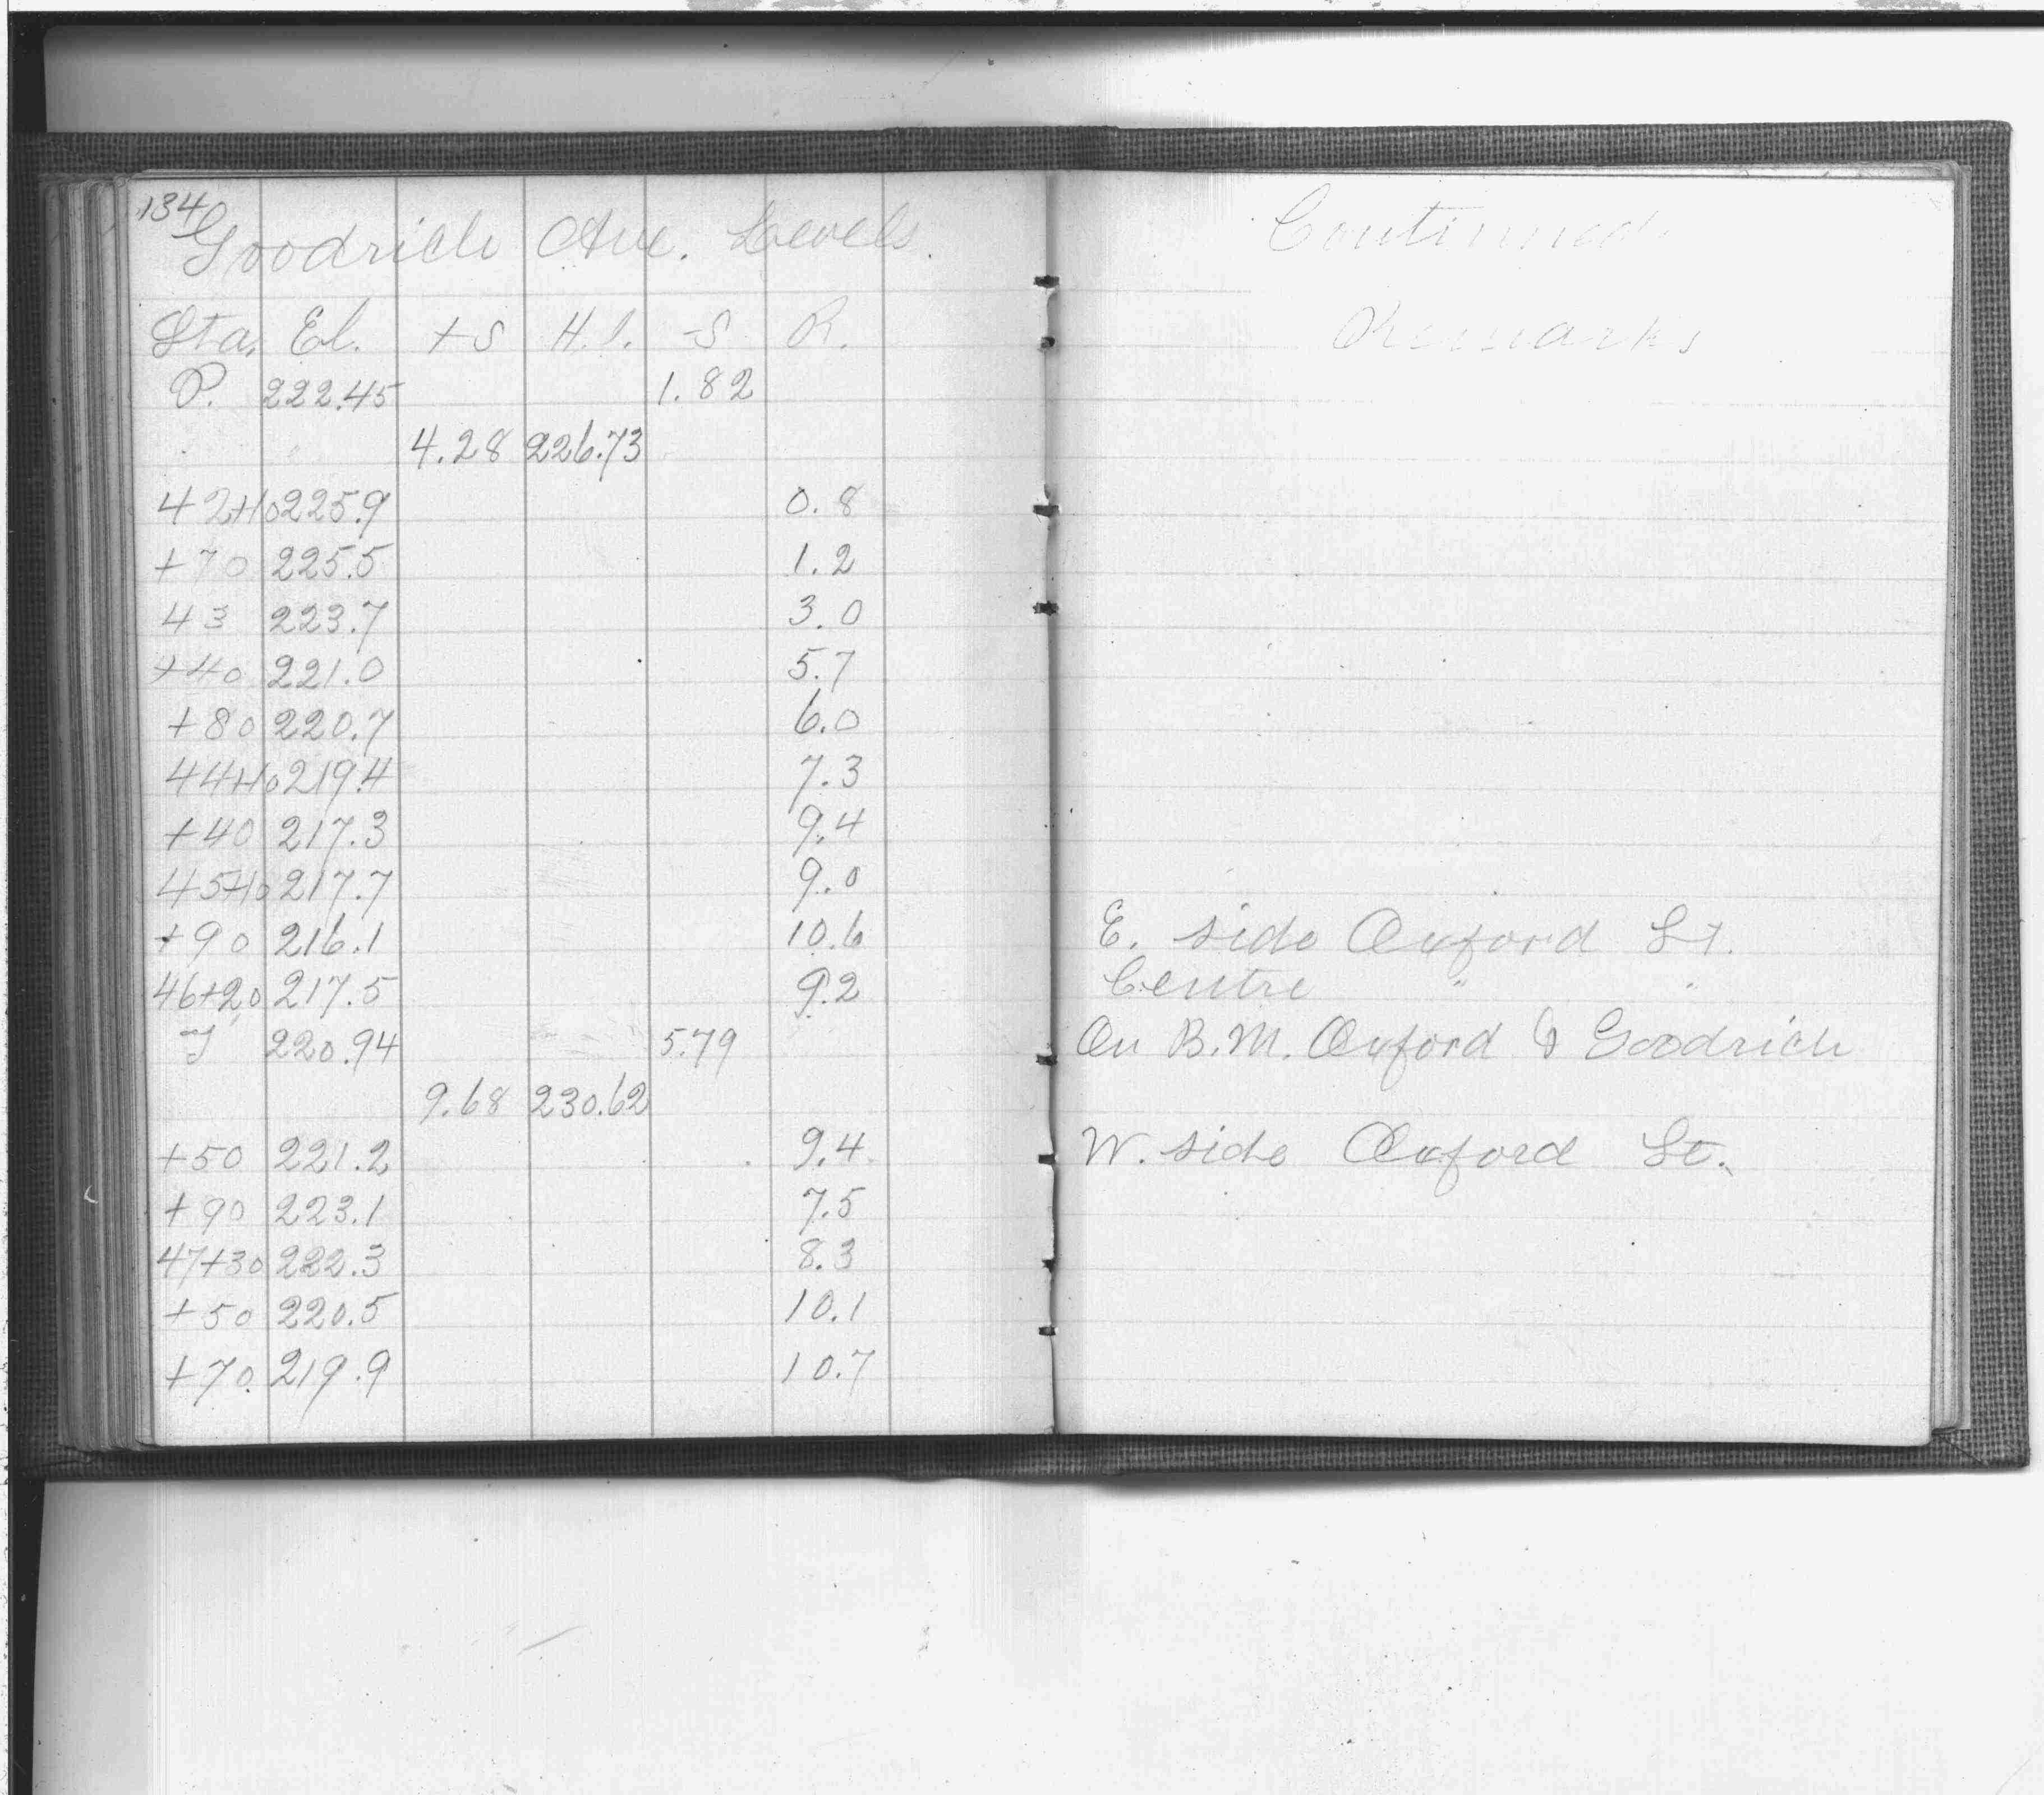 134
Goodrich Ave. Levels Continued
Sta. El. +S H.I. -S R. Remarks
P. 222.45 1.82
4.28 226.73
42+10 225.9 0.8
+70 225.5 1.2
43 223.7 3.0
+40 221.0 5.7
+80 220.7 6.0
44+10 219.4 7.3
+40 217.3 9.4
45+10 217.7 9.0
+90 216.1 10.6 E. side Oxford St.
46+20 217.5 9.2 Centre " "
T 220.94 5.79 On B.M. Oxford & Goodrich
9.68 230.62
+50 221.2 9.4 W. side Oxford St.
+90 223.1 7.5
47+30 222.3 8.3
+50 220.5 10.1
+70 219.9 10.7